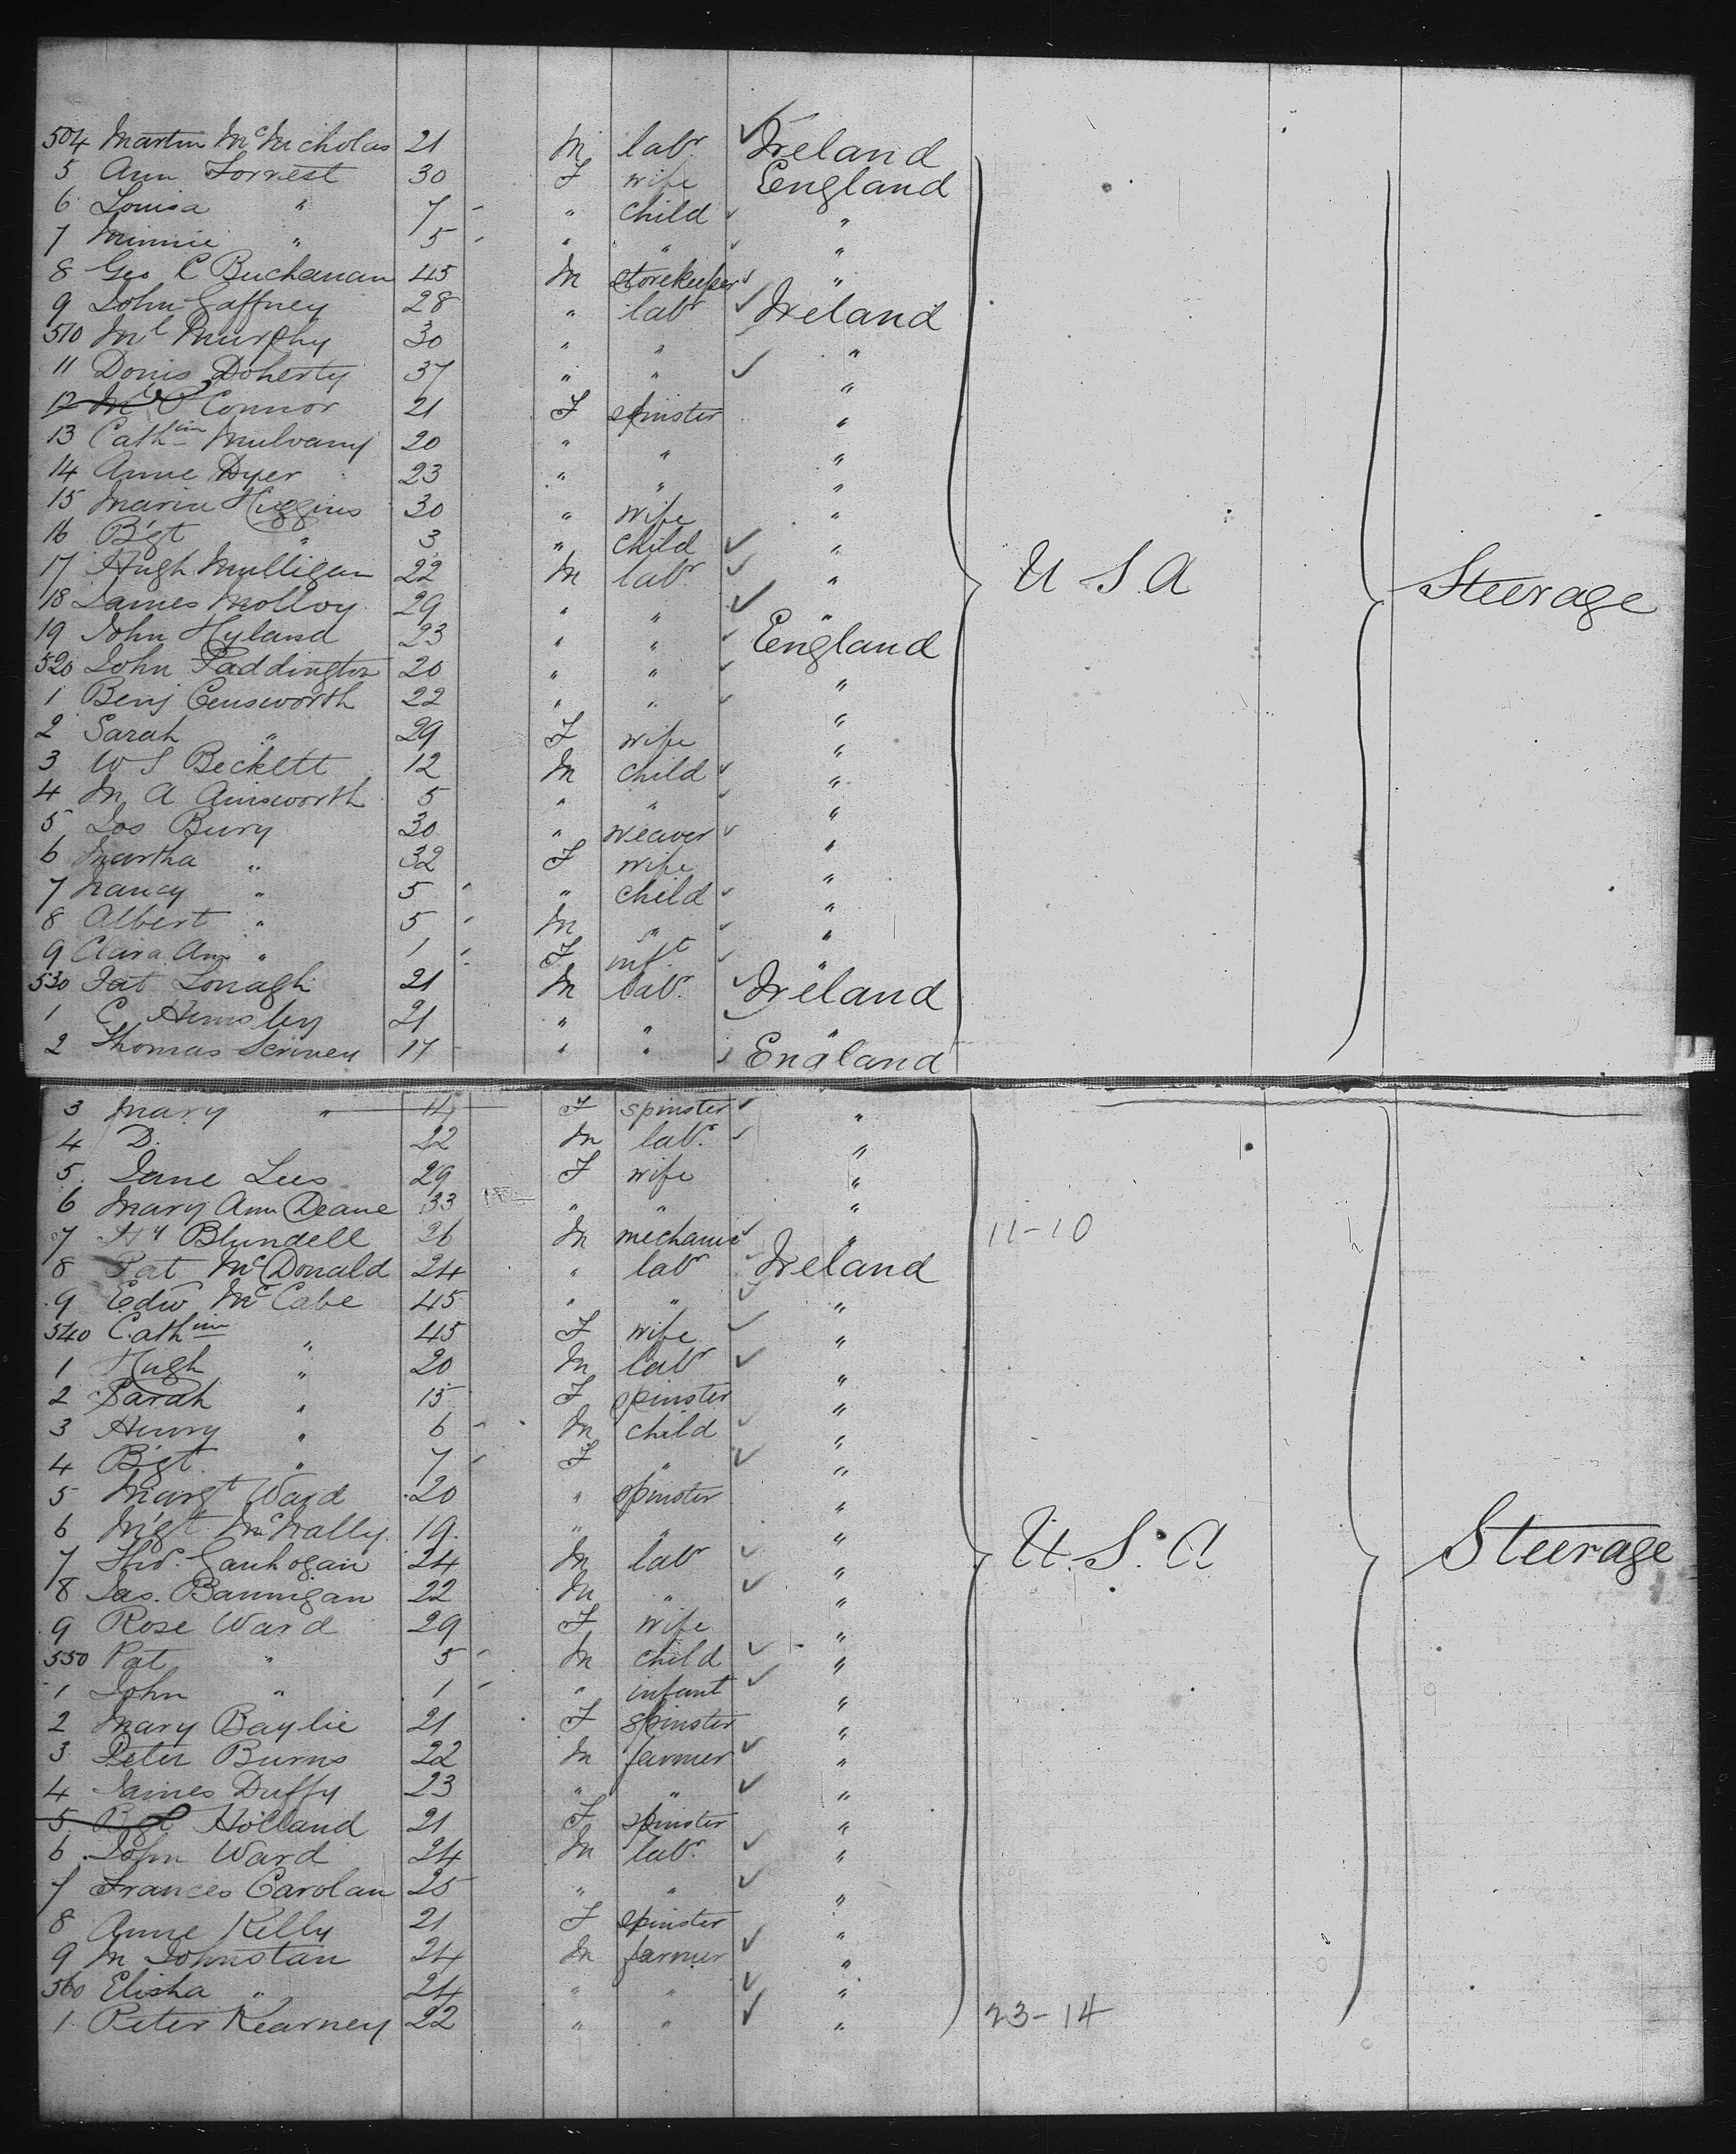 504 Martin McNicholas 21 M labr Ireland
5 Ann Forrest 30 F wife England
6 Louisa " 7 " child "
7 Minnie " 5 " " "
8 Geo C Buchanan 45 M storekeeper "
9 John Gaffney 28 " labr Ireland
510 Ml Murphy 30 " " "
11 Denis Doherty 37 " " "
12 O'Connor 21 F spinster "
13 Cathine Mulvany 20 " " "
14 Anne Dyer 23 " " "
15 Maria Higgins 30 " wife "
16 Bgt " 3 " child "
17 Hugh Mulligan 22 M labr " U S A Steerage
18 James Molloy 29 " " "
19 John Hyland 23 " " England
520 John Paddington 20 " " "
1 Benj Censworth 22 " " "
2 Sarah " 29 F wife "
3 W S Beckett 12 M child "
4 M A Ainsworth 5 " " "
5 Jos Bury 30 " weaver "
6 Martha " 32 F wife "
7 Nancy " 5 " child "
8 Albert " 5 M " "
9 Clara Ann " 1 F inft "
530 Pat Lonagh 21 M labr. Ireland
1 C 21 " " "
2 Thomas 17 " " England
3 Mary " F spinster "
4 D. 22 M labr. "
5 Jane Lees 29 F wife "
6 Mary Ann Deane 33 " " "
7 Hy Blundell 26 M mechanic " 11-10
8 Pat McDonald 24 " labr Ireland
9 Edw McCabe 45 " " "
540 Cathine " 45 F wife "
1 Hugh " 20 M labr "
2 Sarah " 15 F spinster "
3 Henry " 6 M child "
4 Bgt " 7 F " "
5 Margt Ward 20 " spinster "
6 Mgt McNally 19 " " "
7 Thos. Ganhogan 24 M labr " U. S. A Steerage
8 Jas. Bannigan 22 M " "
9 Rose Ward 29 F wife "
550 Pat " 5 M child "
1 John " 1 " infant "
2 Mary Baylie 21 F spinster "
3 Peter Burns 22 M farmer "
4 James Duffy 23 " " "
5 Bgt Holland 21 F spinster "
6 John Ward 24 M labr. "
7 Frances Carolan 25 " " "
8 Anne Kelly 21 F spinster "
9 M Johnstan 24 M farmer "
560 Elisha " 24 " " "
1 Peter Kearney 22 " " " 23-14